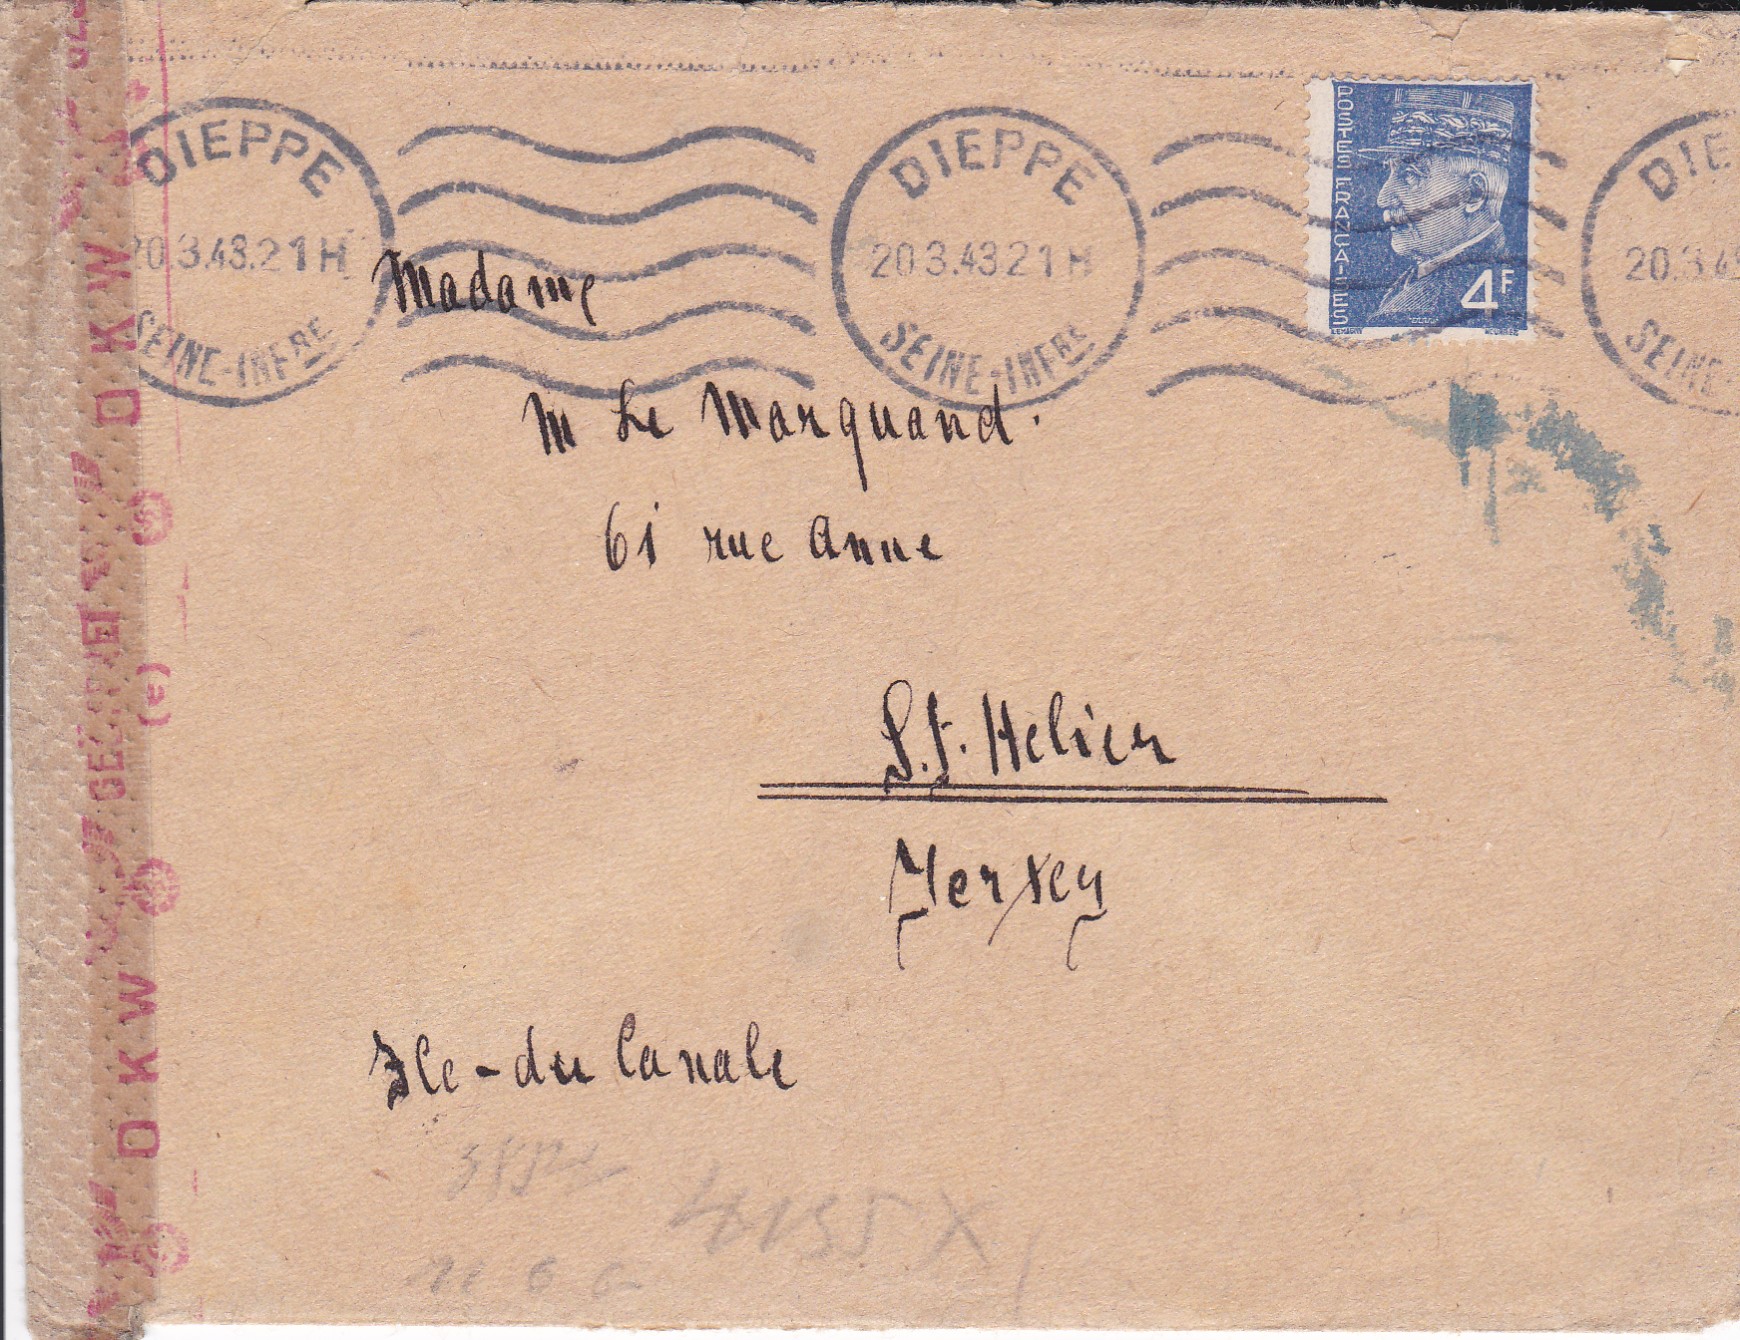 DIEPPE
20.3.43.21H
SEINE-INFRE
DIEPPE
20 3.43 21 H
SEINE-INFRE
POSTES FRANÇAISES
4F
DIE
20.3.4
SEINE-
Madame
M Le Marquand.
61 rue Anne
S.t. Helier
Jersey
Ile-du Canale
OKW
GEÖFFNET
(e)
OKW